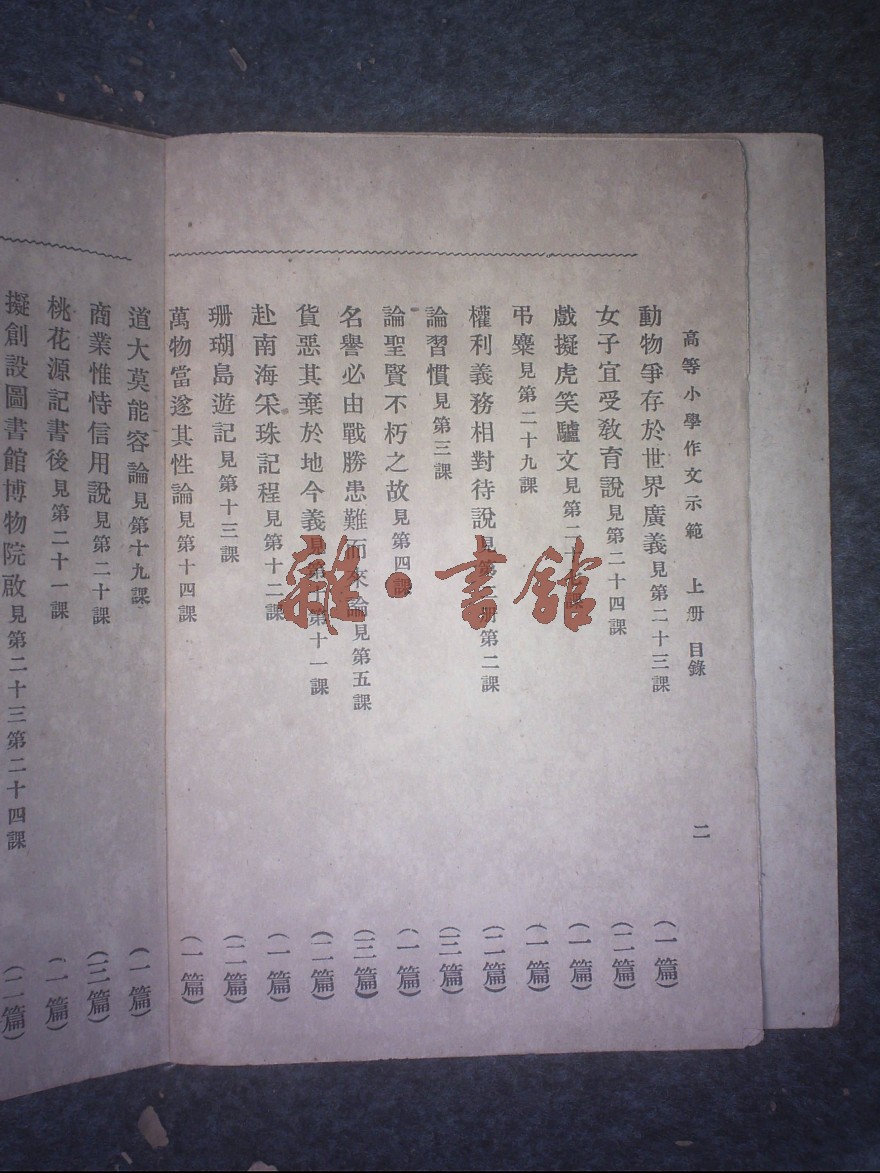 高等小學作文示範 上册 目錄 二
動物爭存於世界廣義見第二十三課 (一篇)
女子宜受敎育說見第二十四課 (二篇)
戲擬虎笑驢文見第二十課 (一篇)
弔麋見第二十九課 (一篇)
權利義務相對待說見第二册第二課 (二篇)
論習慣見第三課 (三篇)
論聖賢不朽之故見第四課 (一篇)
名譽必由戰勝患難而來論見第五課 (三篇)
貨惡其棄於地今義見第十第十一課 (二篇)
赴南海采珠記程見第十二課 (一篇)
珊瑚島遊記見第十三課 (二篇)
萬物當遂其性論見第十四課 (一篇)
道大莫能容論見第十九課 (一篇)
商業惟恃信用說見第二十課 (三篇)
桃花源記書後見第二十一課 (一篇)
擬創設圖書館博物院啟見第二十三第二十四課 (二篇)
雜·書館